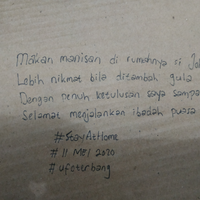 Makan manisan di rumahnya si
Lebih nikmat bila ditambah gula
Dengan penuh ketulusan saya
Selamat menjalankan ibadah puasa
#StayAtHome
# 11 MEI 2020
# ufoterbang